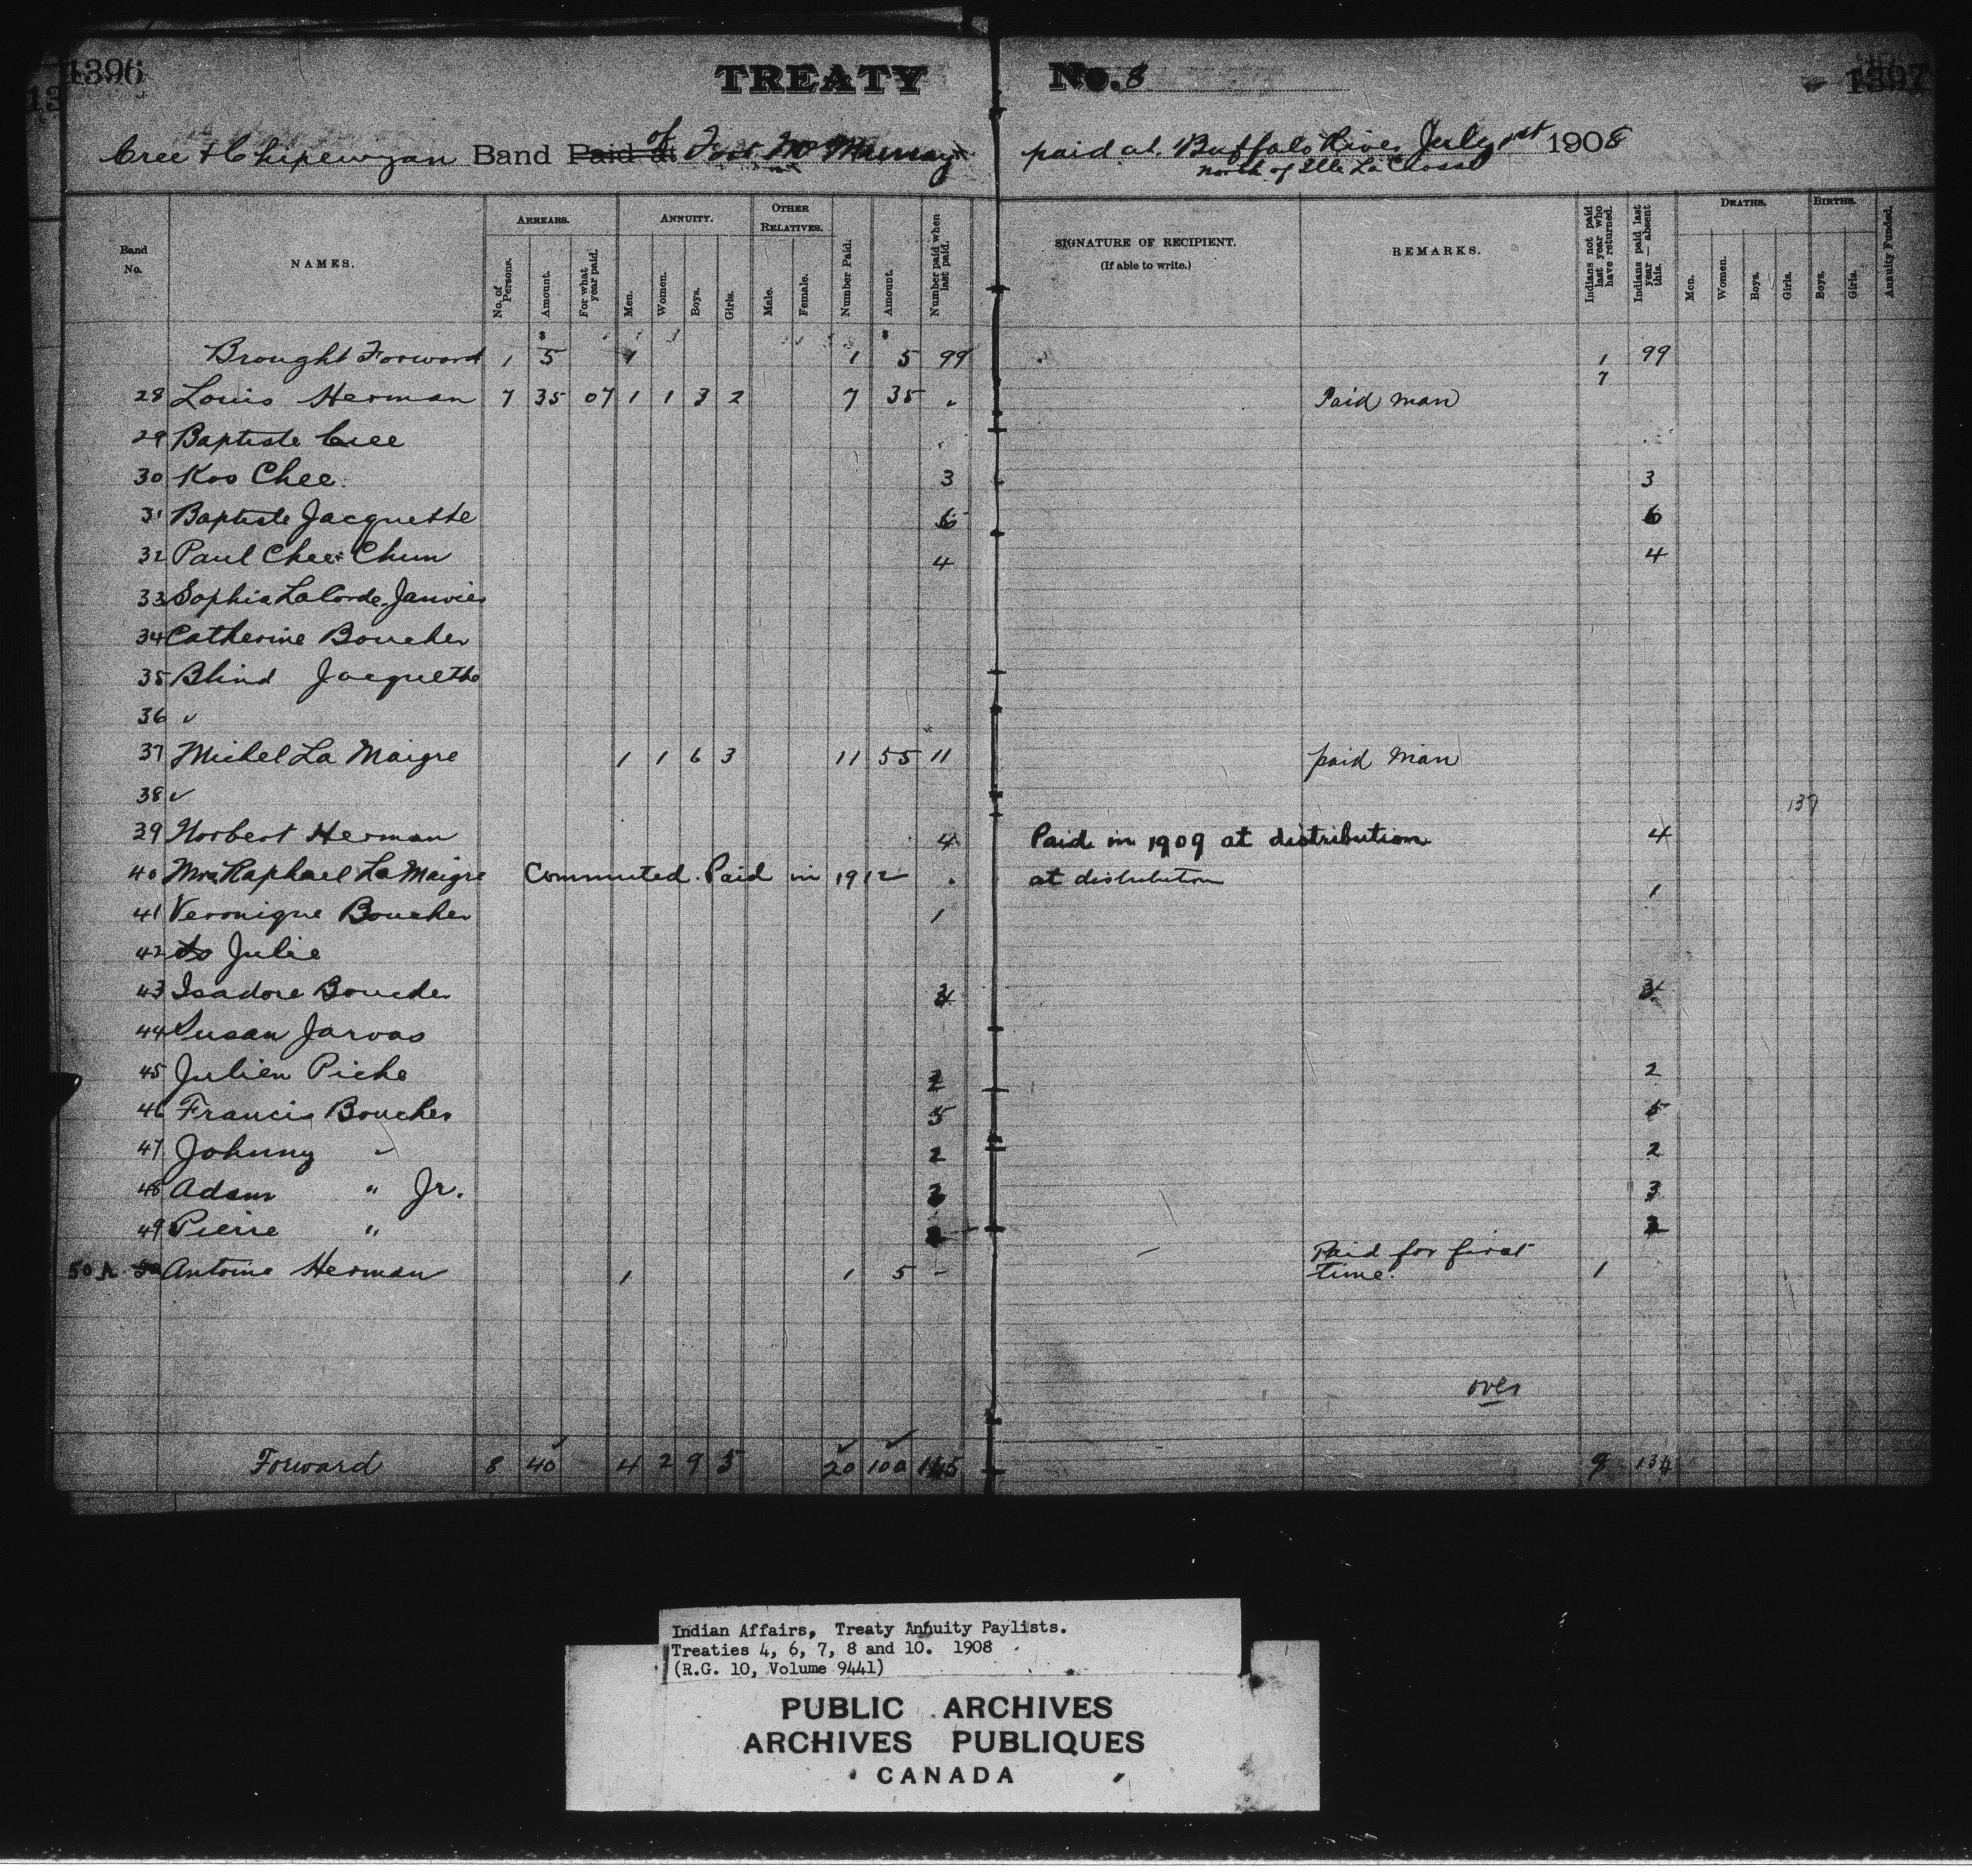 1396
TREATY No. 8
1397
Cree & Chipewyan Band Paid at of Fort McMurray paid at Buffalo River July 1st 1908
north of Ille La Crosse
Band No.
NAMES.
ARREARS.
No. of Persons.
Amount.
For what year paid.
ANNUITY.
Men.
Women.
Boys.
Girls.
OTHER RELATIVES.
Male.
Female.
Number Paid.
Amount.
Number paid when last paid.
SIGNATURE OF RECIPIENT.
(If able to write.)
REMARKS.
Indians not paid last year who have returned.
Indians paid last year — absent this.
DEATHS.
Men.
Women.
Boys.
Girls.
BIRTHS.
Boys.
Girls.
Annuity Funded.
Brought Forward 1 5 1 1 5 99 1 99
7
28 Louis Herman 7 35 07 1 1 3 2 7 35 Paid man
29 Baptiste Cree
30 Koo Chee 3 3
31 Baptiste Jacquette 6 6
32 Paul Chee Chum 4 4
33 Sophia LaCorde Janvier
34 Catherine Boucher
35 Blind Jacquette
36 ✓
37 Michel La Maigre 1 1 6 3 11 55 11 paid man
38 ✓
137
39 Norbert Herman 4 Paid in 1909 at distribution 4
40 Mrs Raphael La Maigre Commuted. Paid in 1912 at distribution
41 Veronique Boucher 1 1
42 do Julie
43 Isadore Boucher
44 Susan Jarvas
45 Julien Piche 2 2
46 Francis Boucher 5 5
47 Johnny " 2 2
48 Adam " Jr. 3 3
49 Pierre " 2 2
50A Antoine Herman 1 1 5 - Paid for first time. 1
over
Forward 8 40 4 2 9 5 20 100 9
Indian Affairs, Treaty Annuity Paylists.
Treaties 4, 6, 7, 8 and 10. 1908
(R.G. 10, Volume 9441)
PUBLIC ARCHIVES
ARCHIVES PUBLIQUES
CANADA